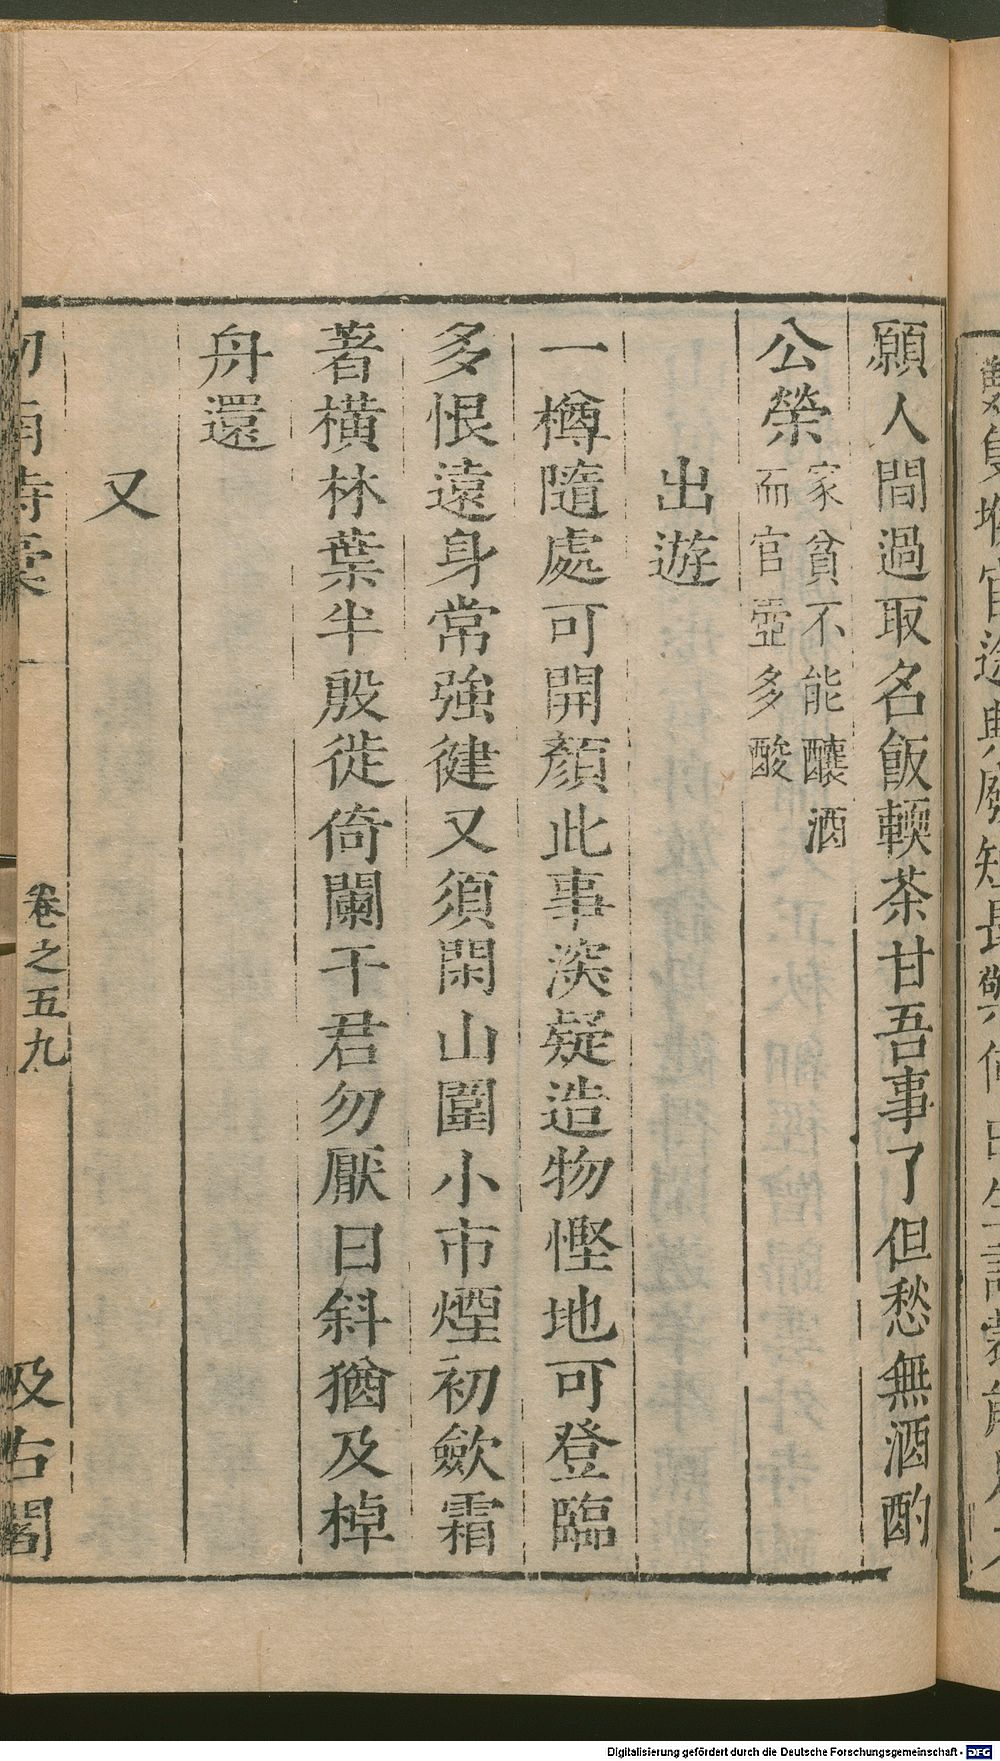 願人間過取名飯輭茶甘吾事了但愁無酒酌
公榮家貧不能釀酒
而官壺多酸
出遊
一樽隨處可開顏此事深疑造物慳地可登臨
多恨遠身常強健又須閑山圍小市煙初歛霜
著橫林葉半殷徙倚闌干君勿厭日斜猶及棹
舟還
又
劒南詩稾
卷之五九
汲古閣
Digitalisierung gefördert durch die Deutsche Forschungsgemeinschaft - DFG